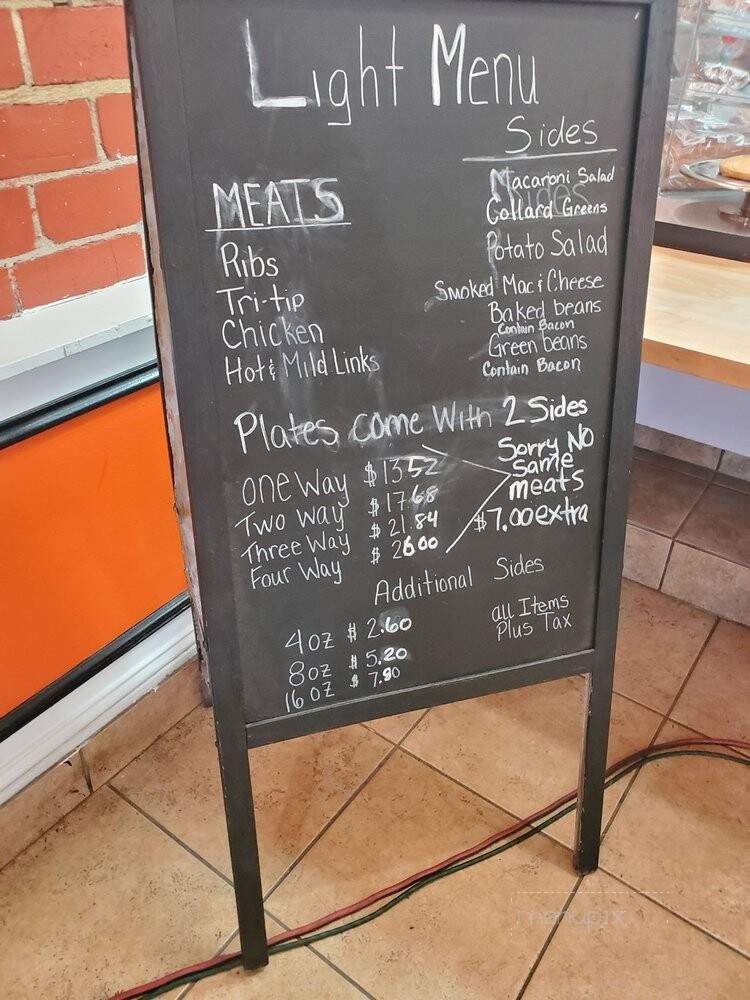 Light Menu
Sides
MEATS
Macaroni Salad
Collard Greens
Potato Salad
Smoked Mac & Cheese
Baked beans
Contain Bacon
Green beans
Contain Bacon
Ribs
Tri-tip
Chicken
Hot & Mild Links
Plates come With 2 Sides
One Way $13.52
Two Way $17.68
Three Way $21.84
Four Way $26.00
Sorry NO
same
meats
$7.00 extra
Additional Sides
4oz $2.60
8oz $5.20
16oz $7.80
all Items
Plus Tax
menupix